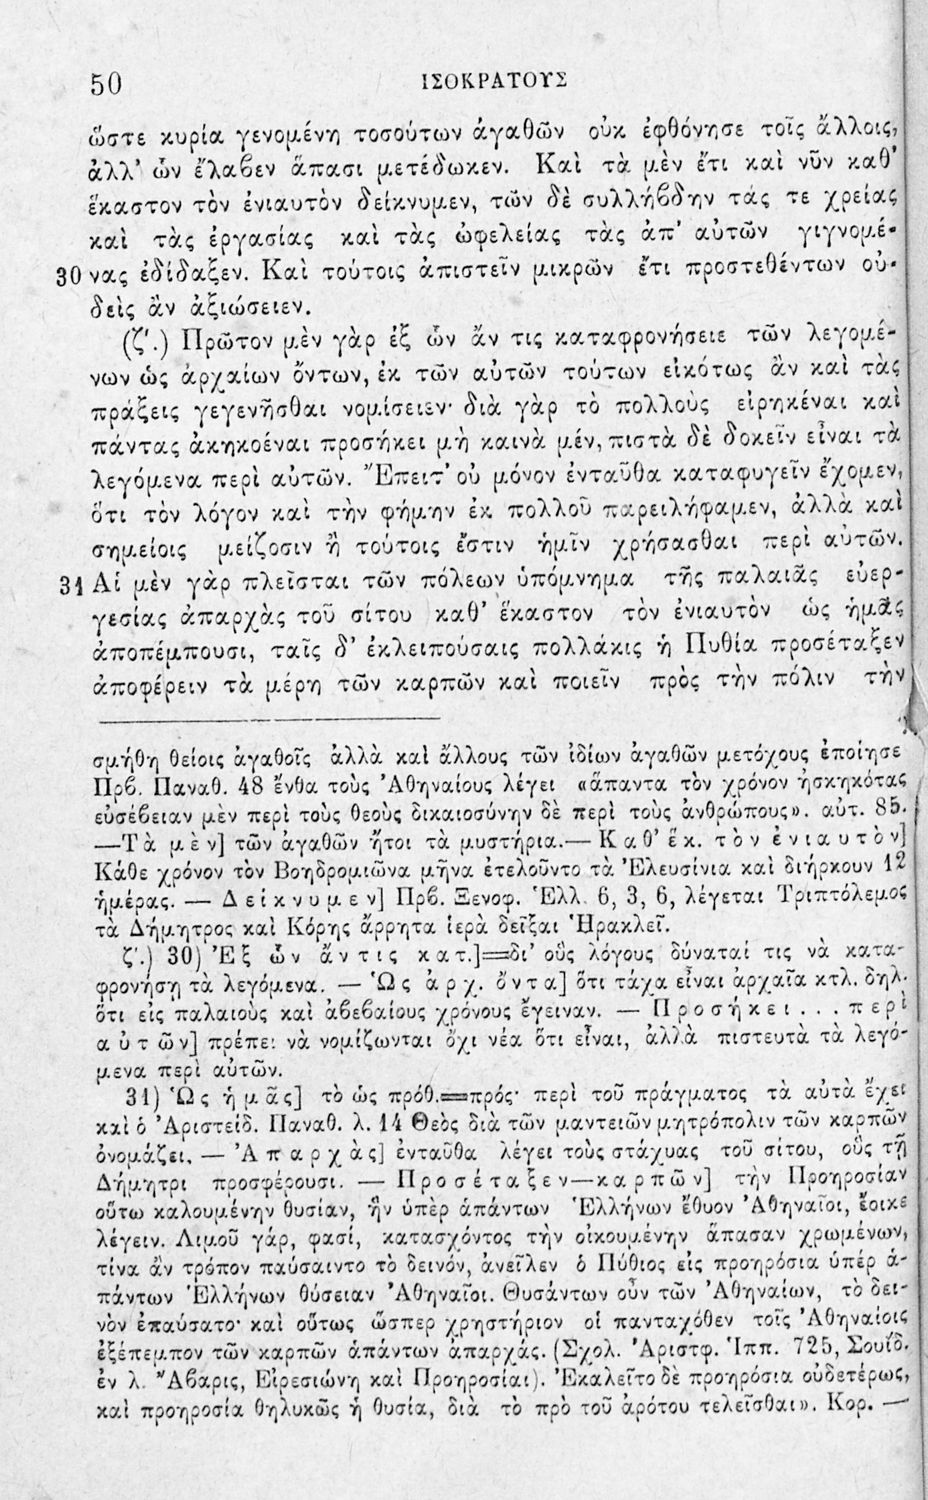 50 ΙΣΟΚΡΑΤΟΥΣ
ὥστε κυρία γενομένη τοσούτων ἀγαθῶν οὐκ ἐφθόνησε τοῖς ἄλλοις,
ἀλλ' ὧν ἔλαβεν ἅπασι μετέδωκεν. Καὶ τὰ μὲν ἔτι καὶ νῦν καθ'
ἕκαστον τὸν ἐνιαυτὸν δείκνυμεν, τῶν δὲ συλλήβδην τάς τε χρείας
καὶ τὰς ἐργασίας καὶ τὰς ὠφελείας τὰς ἀπ' αὐτῶν γιγνομέ-
30 νας ἐδίδαξεν. Καὶ τούτοις ἀπιστεῖν μικρῶν ἔτι προστεθέντων οὐ-
δεὶς ἂν ἀξιώσειεν.
(ζ'.) Πρῶτον μὲν γὰρ ἐξ ὧν ἄν τις καταφρονήσειε τῶν λεγομέ-
νων ὡς ἀρχαίων ὄντων, ἐκ τῶν αὐτῶν τούτων εἰκότως ἂν καὶ τὰς
πράξεις γεγενῆσθαι νομίσειεν· διὰ γὰρ τὸ πολλοὺς εἰρηκέναι καὶ
πάντας ἀκηκοέναι προσήκει μὴ καινὰ μέν, πιστὰ δὲ δοκεῖν εἶναι τὰ
λεγόμενα περὶ αὐτῶν. Ἔπειτ' οὐ μόνον ἐνταῦθα καταφυγεῖν ἔχομεν,
ὅτι τὸν λόγον καὶ τὴν φήμην ἐκ πολλοῦ παρειλήφαμεν, ἀλλὰ καὶ
σημείοις μείζοσιν ἢ τούτοις ἔστιν ἡμῖν χρήσασθαι περὶ αὐτῶν.
31 Αἱ μὲν γὰρ πλεῖσται τῶν πόλεων ὑπόμνημα τῆς παλαιᾶς εὐερ-
γεσίας ἀπαρχὰς τοῦ σίτου καθ' ἕκαστον τὸν ἐνιαυτὸν ὡς ἡμᾶς
ἀποπέμπουσι, ταῖς δ' ἐκλειπούσαις πολλάκις ἡ Πυθία προσέταξεν
ἀποφέρειν τὰ μέρη τῶν καρπῶν καὶ ποιεῖν πρὸς τὴν πόλιν τὴν
σμήθη θείοις ἀγαθοῖς ἀλλὰ καὶ ἄλλους τῶν ἰδίων ἀγαθῶν μετόχους ἐποίησε
Πρβ. Παναθ. 48 ἔνθα τοὺς Ἀθηναίους λέγει «ἅπαντα τὸν χρόνον ἠσκηκότας
εὐσέβειαν μὲν περὶ τοὺς θεοὺς δικαιοσύνην δὲ περὶ τοὺς ἀνθρώπους». αὐτ. 85.
—Τὰ μὲν] τῶν ἀγαθῶν ἤτοι τὰ μυστήρια.— Καθ' ἕκ. τὸν ἐνιαυτὸν]
Κάθε χρόνον τὸν Βοηδρομιῶνα μῆνα ἐτελοῦντο τὰ Ἐλευσίνια καὶ διήρκουν 12
ἡμέρας. — Δείκνυμεν] Πρβ. Ξενοφ. Ἑλλ. 6, 3, 6, λέγεται Τριπτόλεμος
τὰ Δήμητρος καὶ Κόρης ἄρρητα ἱερὰ δεῖξαι Ἡρακλεῖ.
ζ'.) 30) Ἐξ ὧν ἄν τις κατ.]=δι' οὓς λόγους δύναταί τις νὰ κατα-
φρονήσῃ τὰ λεγόμενα. — Ὡς ἀρχ. ὄντα] ὅτι τάχα εἶναι ἀρχαῖα κτλ. δηλ.
ὅτι εἰς παλαιοὺς καὶ ἀβεβαίους χρόνους ἔγειναν. — Προσήκει... περὶ
αὐτῶν] πρέπει νὰ νομίζωνται ὄχι νέα ὅτι εἶναι, ἀλλὰ πιστευτὰ τὰ λεγό-
μενα περὶ αὐτῶν.
31) Ὡς ἡμᾶς] τὸ ὡς πρόθ.=πρός· περὶ τοῦ πράγματος τὰ αὐτὰ ἔχει
καὶ ὁ Ἀριστείδ. Παναθ. λ. 14 Θεὸς διὰ τῶν μαντειῶν μητρόπολιν τῶν καρπῶν
ὀνομάζει. — Ἀπαρχὰς] ἐνταῦθα λέγει τοὺς στάχυας τοῦ σίτου, οὓς τῇ
Δήμητρι προσφέρουσι. — Προσέταξεν—καρπῶν] τὴν Προηροσίαν
οὕτω καλουμένην θυσίαν, ἣν ὑπὲρ ἁπάντων Ἑλλήνων ἔθυον Ἀθηναῖοι, ἔοικε
λέγειν. Λιμοῦ γάρ, φασί, κατασχόντος τὴν οἰκουμένην ἅπασαν χρωμένων,
τίνα ἂν τρόπον παύσαιντο τὸ δεινόν, ἀνεῖλεν ὁ Πύθιος εἰς προηρόσια ὑπέρ ἁ-
πάντων Ἑλλήνων θύσειαν Ἀθηναῖοι. Θυσάντων οὖν τῶν Ἀθηναίων, τὸ δει-
νὸν ἐπαύσατο· καὶ οὕτως ὥσπερ χρηστήριον οἱ πανταχόθεν τοῖς Ἀθηναίοις
ἐξέπεμπον τῶν καρπῶν ἁπάντων ἀπαρχάς. (Σχολ. Ἀριστφ. Ἱππ. 725, Σουΐδ.
ἐν λ. Ἄβαρις, Εἰρεσιώνη καὶ Προηροσίαι). Ἐκαλεῖτο δὲ προηρόσια οὐδετέρως,
καὶ προηροσία θηλυκῶς ἡ θυσία, διὰ τὸ πρὸ τοῦ ἀρότου τελεῖσθαι». Κορ. —